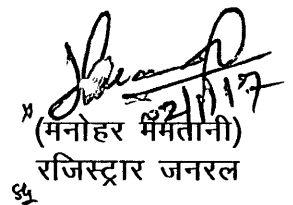 02/1/17
(मनोहर ममतानी)
रजिस्ट्रार जनरल